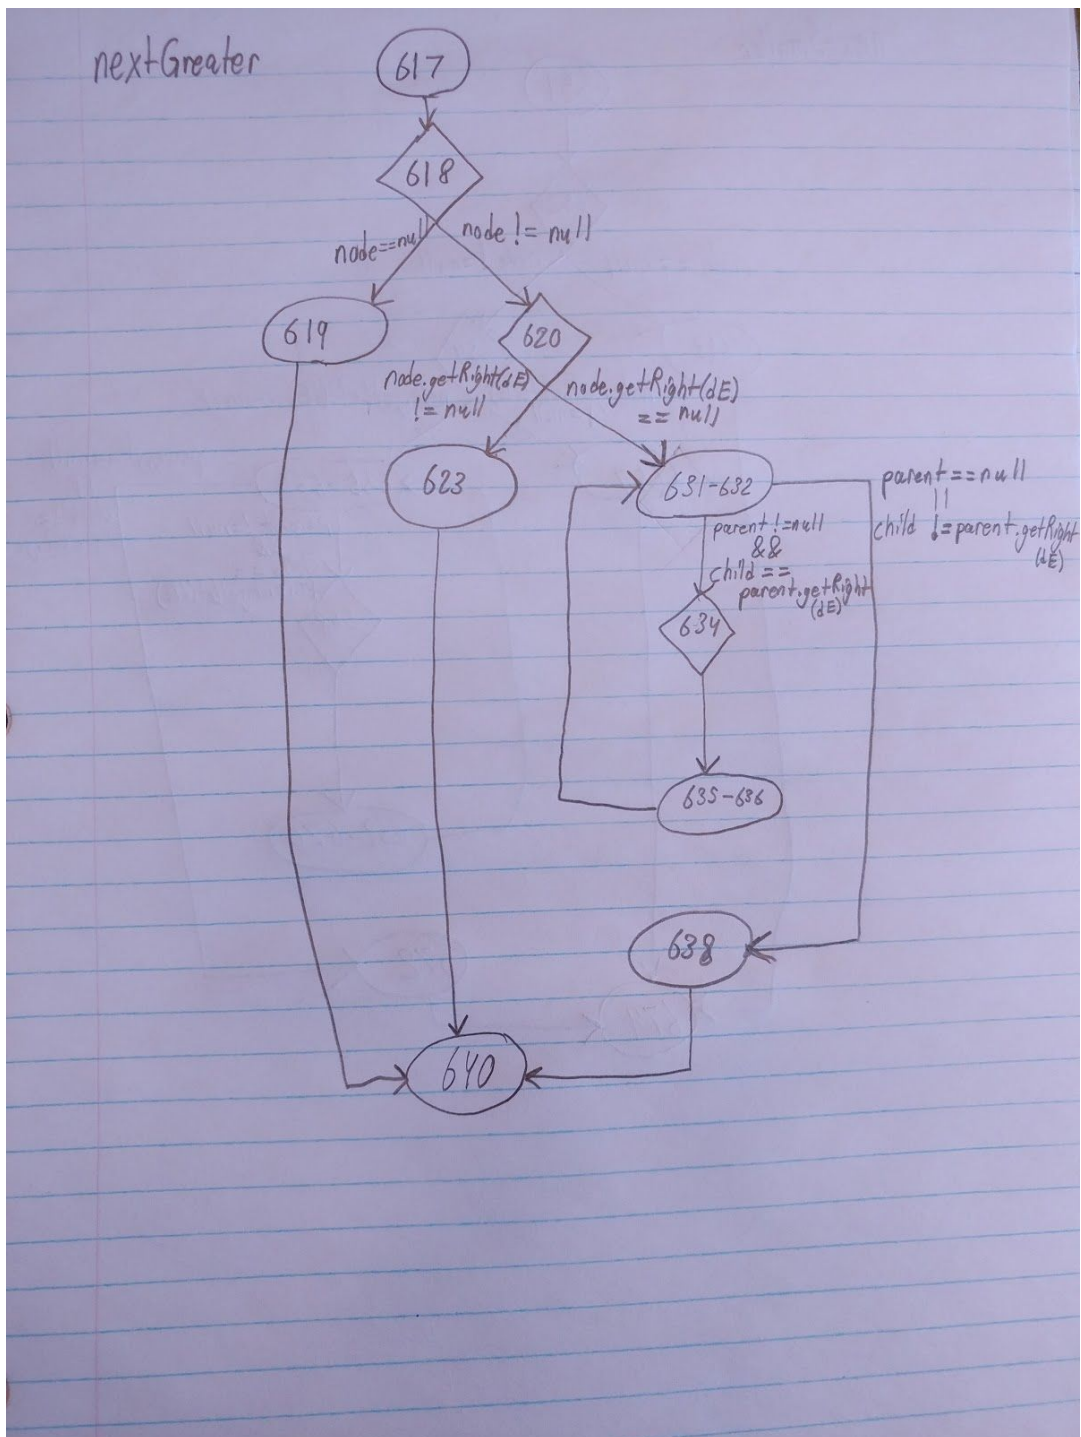 nextGreater
617
618
node==null
node != null
619
620
node.getRight(dE)
!= null
node.getRight(dE)
== null
623
631-632
parent==null
||
child != parent.getRight
(dE)
parent !=null
&&
child ==
parent.getRight
(dE)
634
635-636
638
640